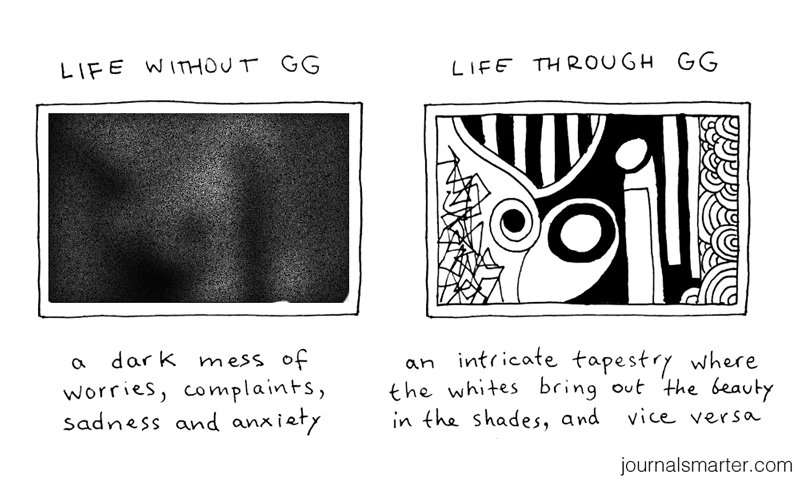 LIFE WITHOUT GG
a dark mess of
worries, complaints,
sadness and anxiety
LIFE THROUGH GG
an intricate tapestry where
the whites bring out the beauty
in the shades, and vice versa
journalsmarter.com